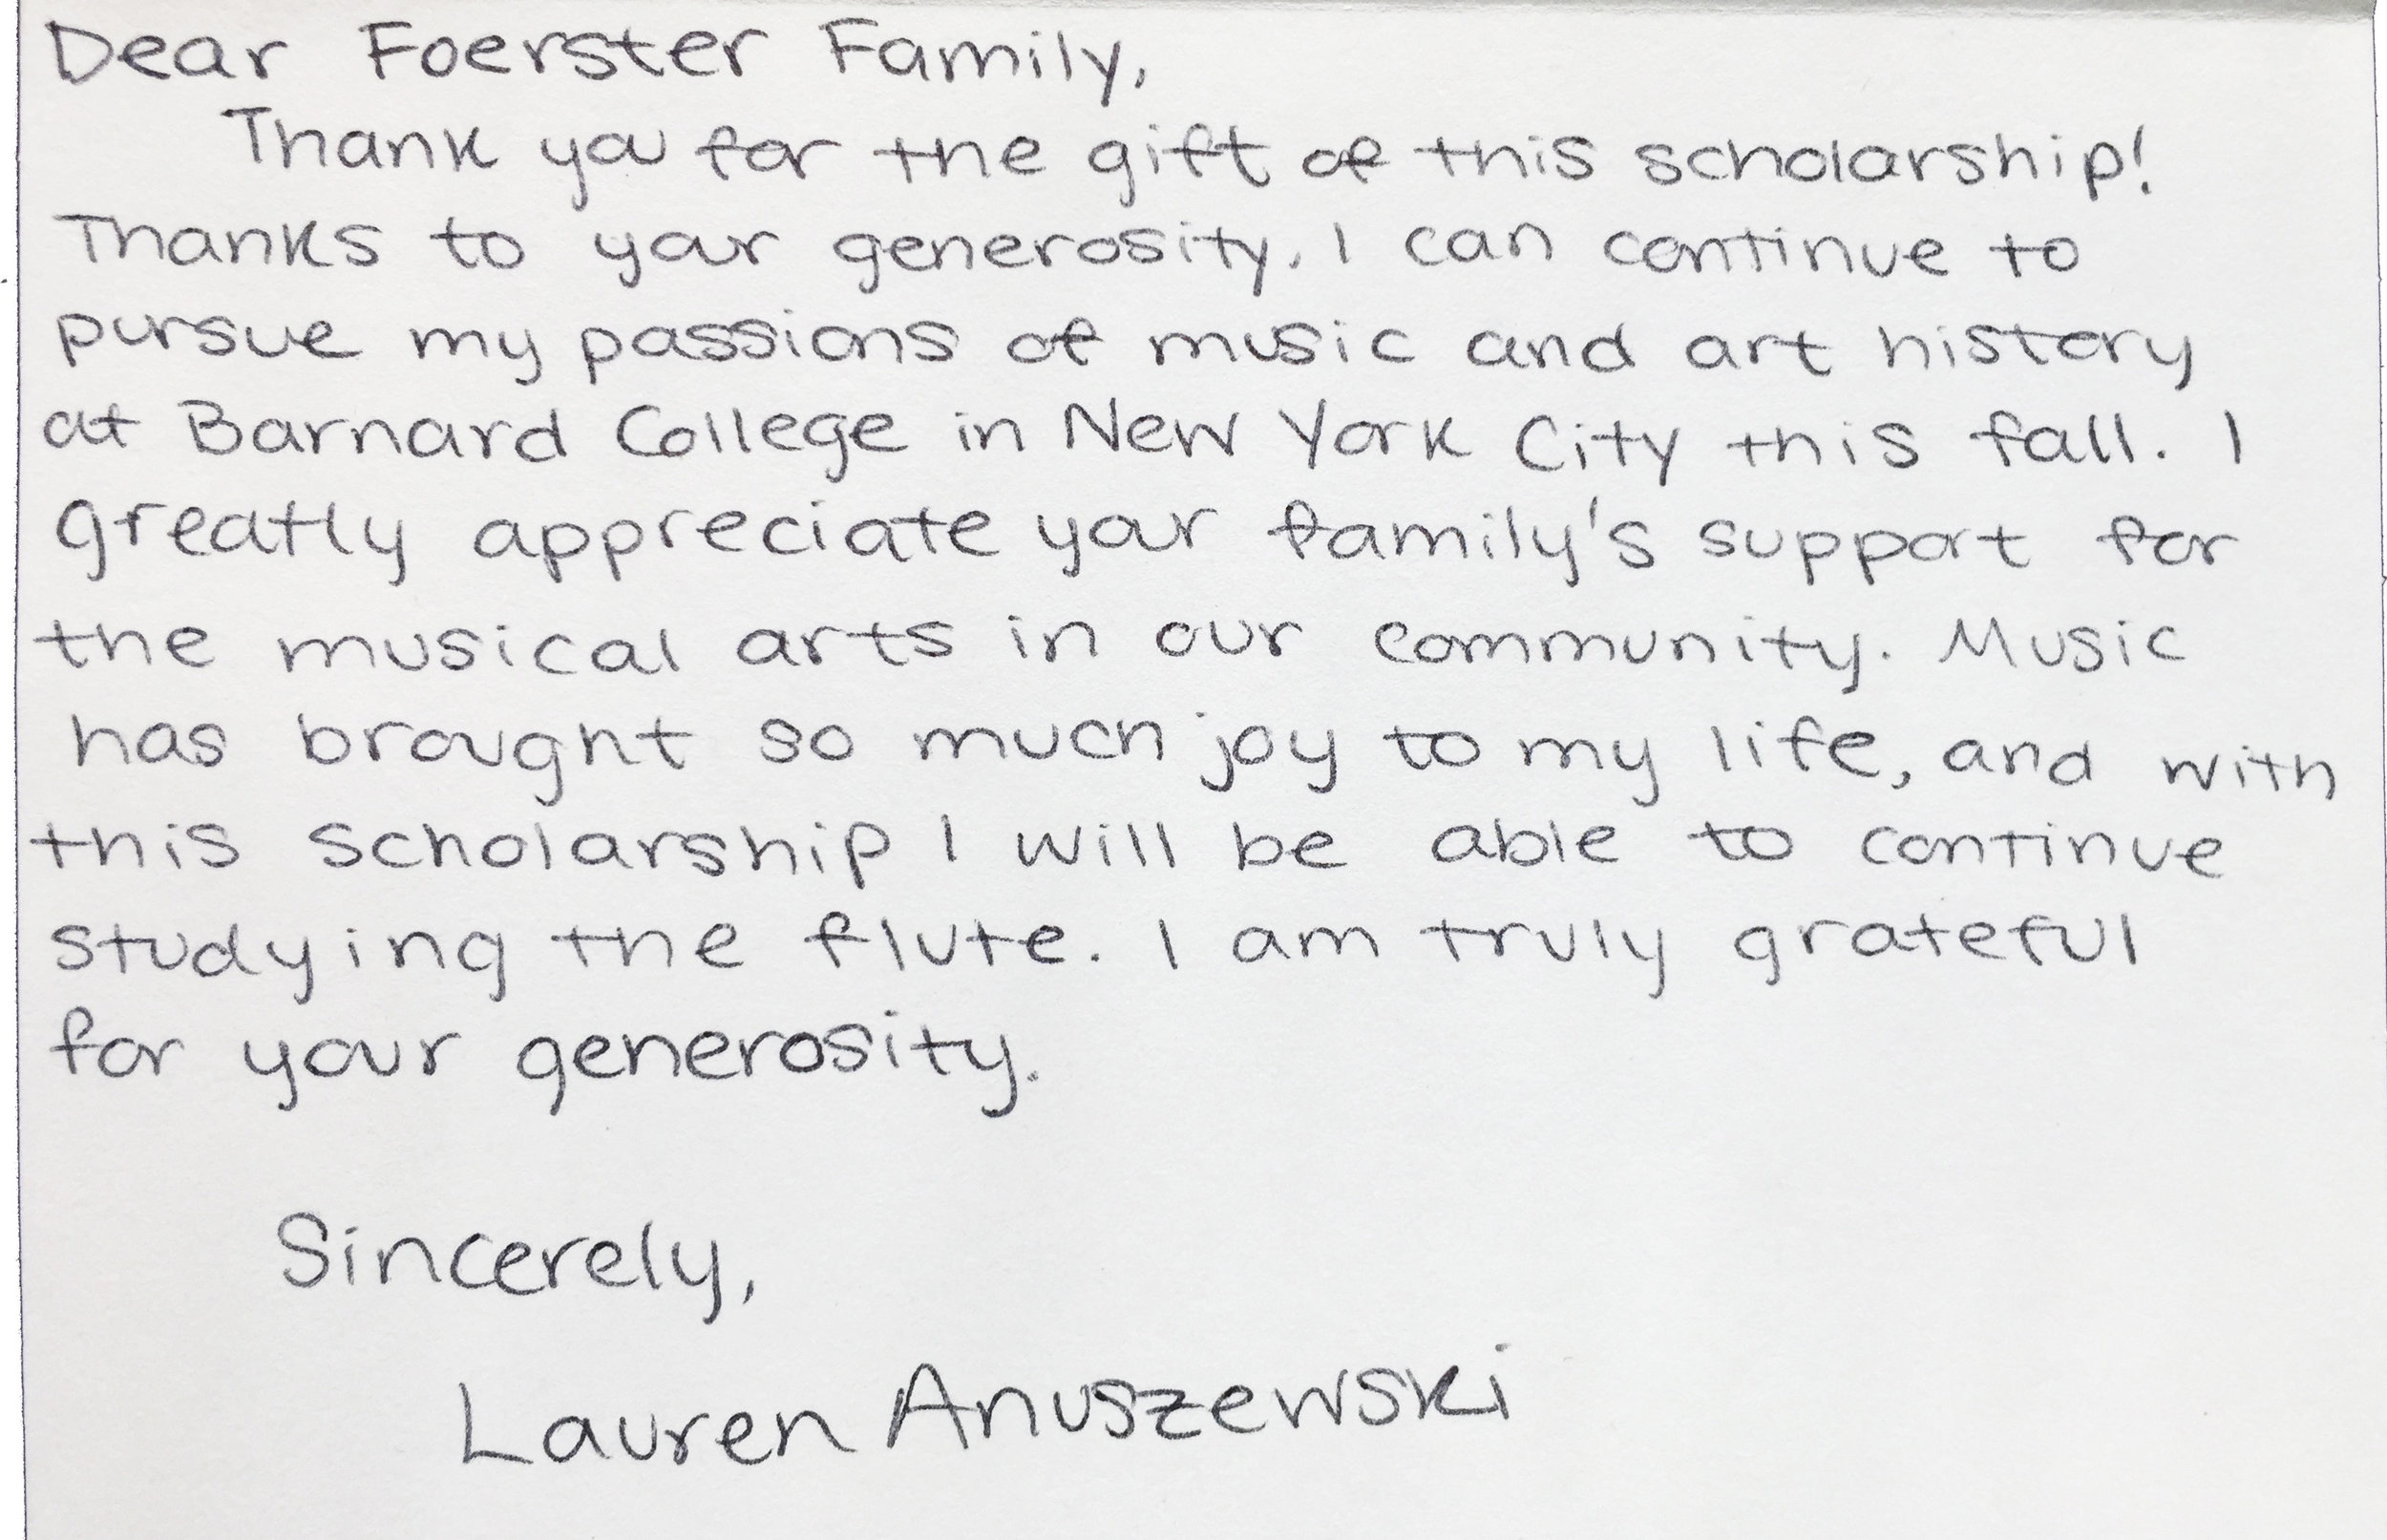 Dear Foerster Family,
Thank you for the gift of this scholarship!
Thanks to your generosity, I can continue to
pursue my passions of music and art history
at Barnard College in New York City this fall. I
greatly appreciate your family's support for
the musical arts in our community. Music
has brought so much joy to my life, and with
this scholarship I will be able to continue
studying the flute. I am truly grateful
for your generosity.
Sincerely,
Lauren Anuszewski